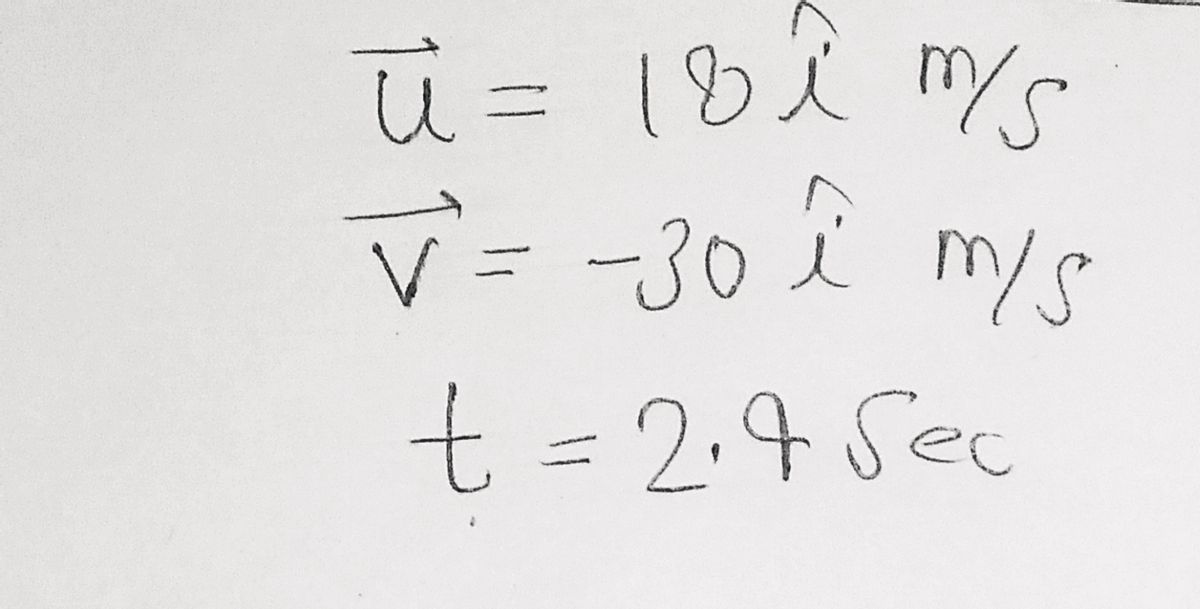 $\vec{u} = 18 \hat{i}$ m/s
$\vec{v} = -30 \hat{i}$ m/s
t = 2.4 Sec